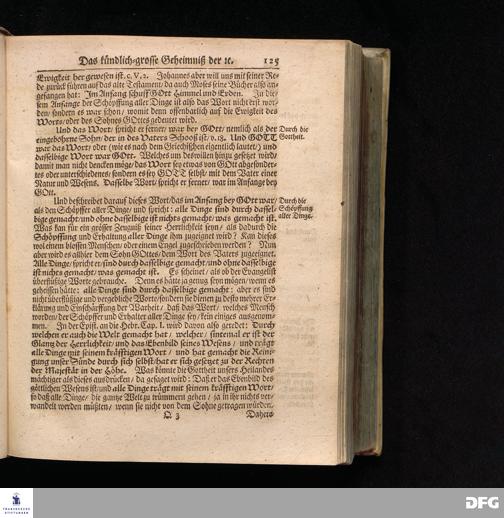 Das kündlich-grosse Geheimniß der ꝛc. 125
Ewigkeit her gewesen ist. c. V. 2. Johannes aber will uns mit seiner Re-
de zurück führen auf das alte Testament/ da auch Moses seine Bücher also an-
gefangen hat: Im Anfang schuff GOtt Himmel und Erden. In die-
sem Anfange der Schöpffung aller Dinge ist also das Wort nicht erst wor-
den/ sondern es war schon/ womit denn offenbarlich auf die Ewigkeit des
Worts/ oder des Sohnes GOttes gedeutet wird.
Und das Wort/ spricht er ferner/ war bey GOtt/ nemlich als der
Durch die
eingebohrne Sohn/ der in des Vaters Schooß ist/ v. 18. Und GOTT
Gottheit.
war das Wort/ oder (wie es nach dem Griechischen eigentlich lautet/) und
dasselbige Wort war GOtt. Welches um deswillen hinzu gesetzt wird/
damit man nicht dencken möge/ das Wort sey etwas von GOtt abgesonder-
tes oder unterschiedenes/ sondern es sey GOTT selbst/ mit dem Vater einer
Natur und Wesens. Dasselbe Wort/ spricht er ferner/ war im Anfange bey
GOtt.
Und beschreibet darauf dieses Wort/ das im Anfang bey GOtt war/
Durch die
als den Schöpffer aller Dinge/ und spricht: alle Dinge sind durch dassel-
Schöpffung
bige gemacht/ und ohne dasselbige ist nichts gemacht/ was gemacht ist.
aller Dinge.
Was kan für ein grösser Zeugniß seiner Herrlichkeit seyn/ als dadurch die
Schöpffung und Erhaltung aller Dinge ihm zugeeignet wird? Kan dieses
wol einem blossen Menschen/ oder einem Engel zugeschrieben werden? Nun
aber wird es allhier dem Sohn GOttes/ dem Wort des Vaters zugeeignet.
Alle Dinge/ spricht er/ sind durch dasselbige gemacht/ und ohne dasselbige
ist nichts gemacht/ was gemacht ist. Es scheinet/ als ob der Evangelist
überflüßige Worte gebrauche. Denn es hätte ja genug seyn mögen/ wenn es
geheissen hätte: alle Dinge sind durch dasselbige gemacht: aber es sind
nicht überflüßige und vergebliche Worte/ sondern sie dienen zu desto mehrer Er-
klärung und Einschärffung der Warheit/ daß das Wort/ welches Mensch
worden/ der Schöpffer und Erhalter aller Dinge sey/ kein einiges ausgenom-
men. In der Epist. an die Hebr. Cap. I. wird davon also geredet: Durch
welchen er auch die Welt gemacht hat/ welcher/ sintemal er ist der
Glantz der Herrlichkeit/ und das Ebenbild seines Wesens/ und trägt
alle Dinge mit seinem kräfftigen Wort/ und hat gemacht die Reini-
gung unser Sünde durch sich selbst/ hat er sich gesetzet zu der Rechten
der Majestät in der Höhe. Was könnte die Gottheit unsers Heilandes
mächtiger als dieses ausdrücken/ da gesagt wird: Daß er das Ebenbild des
göttlichen Wesens ist/ und alle Dinge trägt mit seinem kräfftigen Wort/
so daß alle Dinge/ die gantze Welt zu trümmern gehen/ ja in ihr nichts ver-
wandelt werden müßten/ wenn sie nicht von dem Sohne getragen würden.
Q 3 Dahero
FRANCKESCHE
STIFTUNGEN
DFG